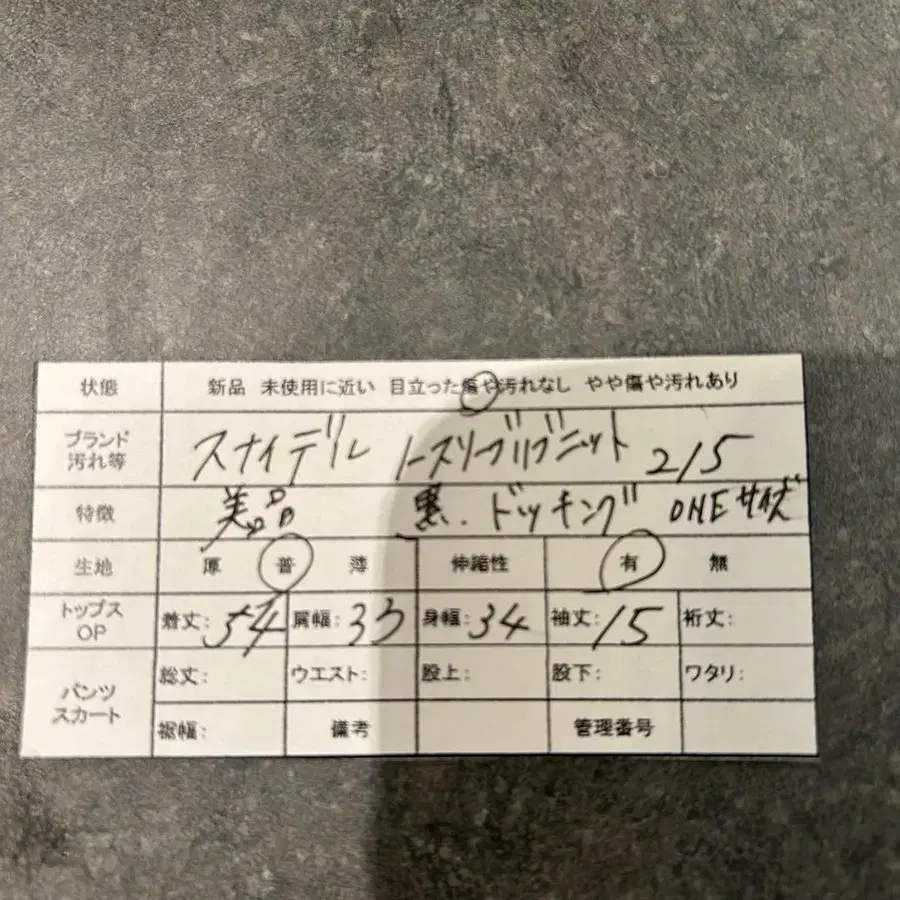 状態 新品 未使用に近い 目立った傷や汚れなし やや傷や汚れあり
ブランド スナイデル ノースリーブリブニット 215
汚れ等
特徴 美品 黒.ドッキング ONEサイズ
生地 厚 普 薄 伸縮性 有 無
トップス 着丈:54 肩幅:33 身幅:34 袖丈:15 裄丈:
OP
パンツ 総丈: ウエスト: 股上: 股下: ワタリ:
スカート 裾幅: 備考 管理番号